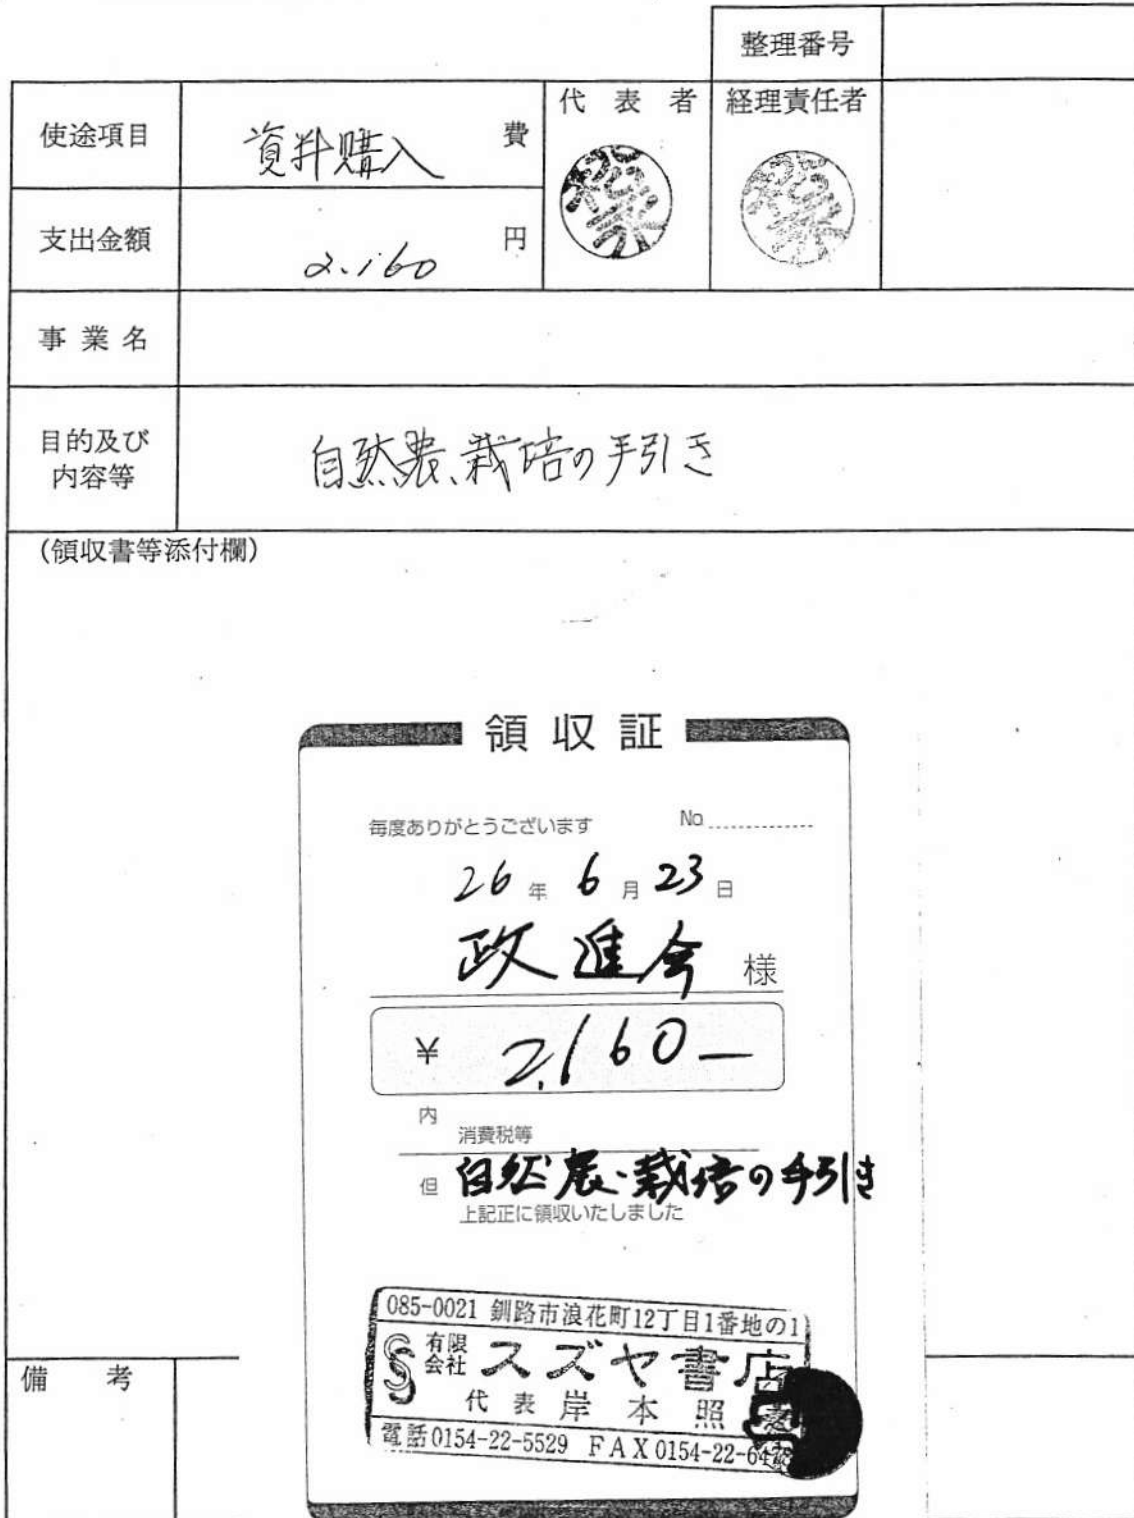 整理番号
使途項目 資料購入 費
代表者 経理責任者
支出金額 2.160 円
事業名
目的及び
内容等
自然農、栽培の手引き
(領収書等添付欄)
領収証
毎度ありがとうございます No
26年6月23日
政進会 様
¥ 2,160—
内
消費税等
但 自然農・栽培の手引き
上記正に領収いたしました
085-0021 釧路市浪花町12丁目1番地の1
有限
会社
スズヤ書店
代表 岸本照
電話0154-22-5529 FAX0154-22-647
備考